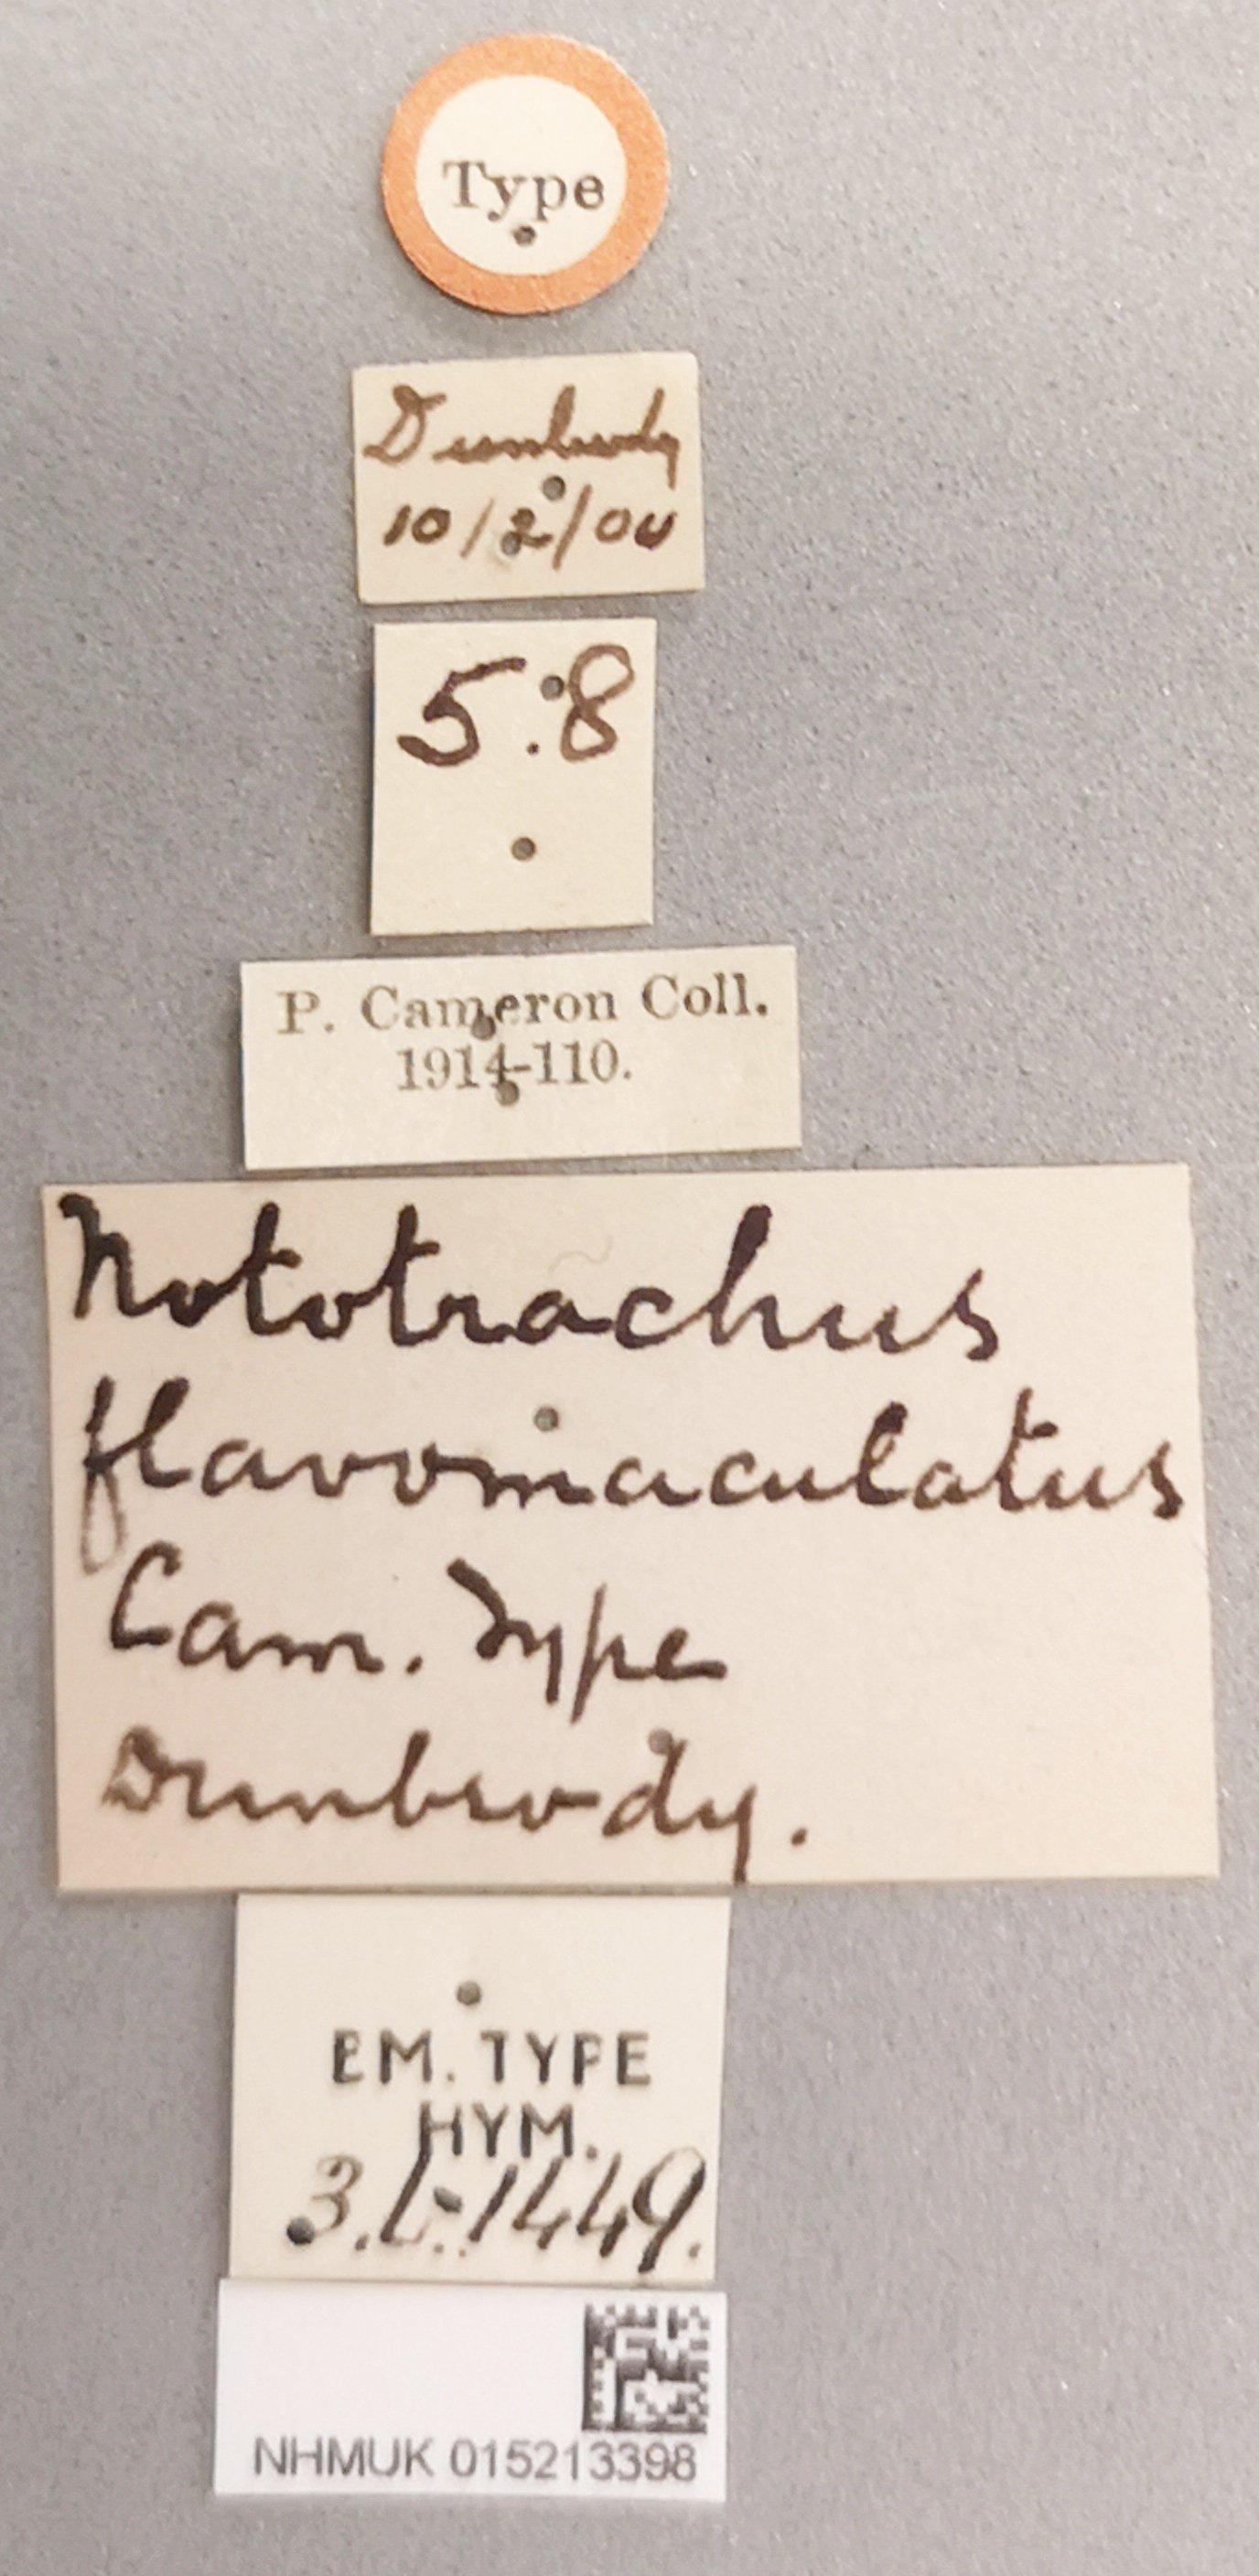 Type
Dunbrody
10/2/00
5.8
P. Cameron Coll.
1914-110.
Nototrachus
flavomaculatus
Cam. Type
Dunbrody.
B.M. TYPE
HYM.
3.b.1449.
NHMUK 015213398